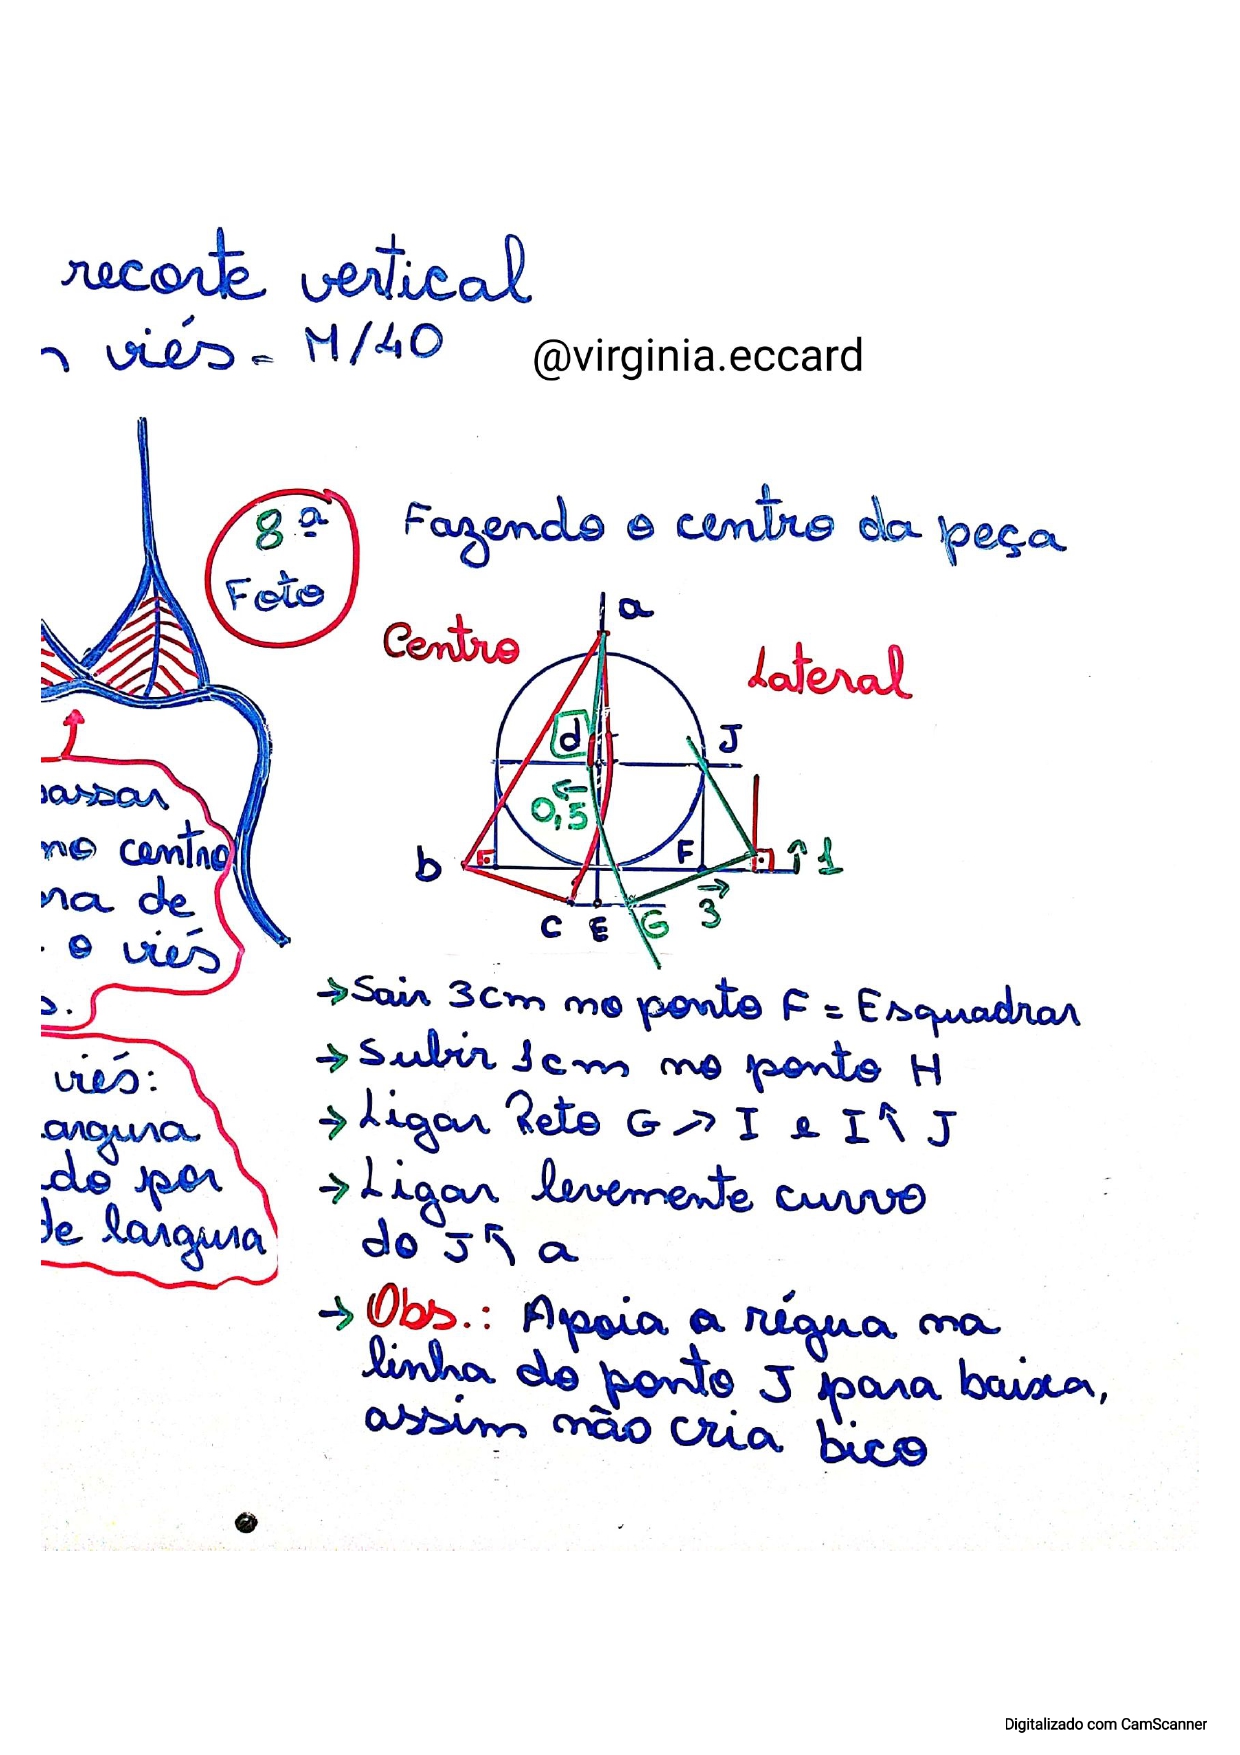 recorte vertical
viés - M/40
@virginia.eccard
8.ª
Foto
Fazendo o centro da peça
a
Centro
Lateral
d
J
0,5
b
F
1
C
E
G
3
passar
no centro
de
. o viés
s.
viés:
argura
do por
de largura
→ Sair 3cm no ponto F = Esquadrar
→ Subir 1cm no ponto H
→ Ligar Reto G ↗ I e I ↖ J
→ Ligar levemente curvo
do J ↖ a
→ Obs.: Apoia a régua na
linha do ponto J para baixa,
assim não cria bico
Digitalizado com CamScanner